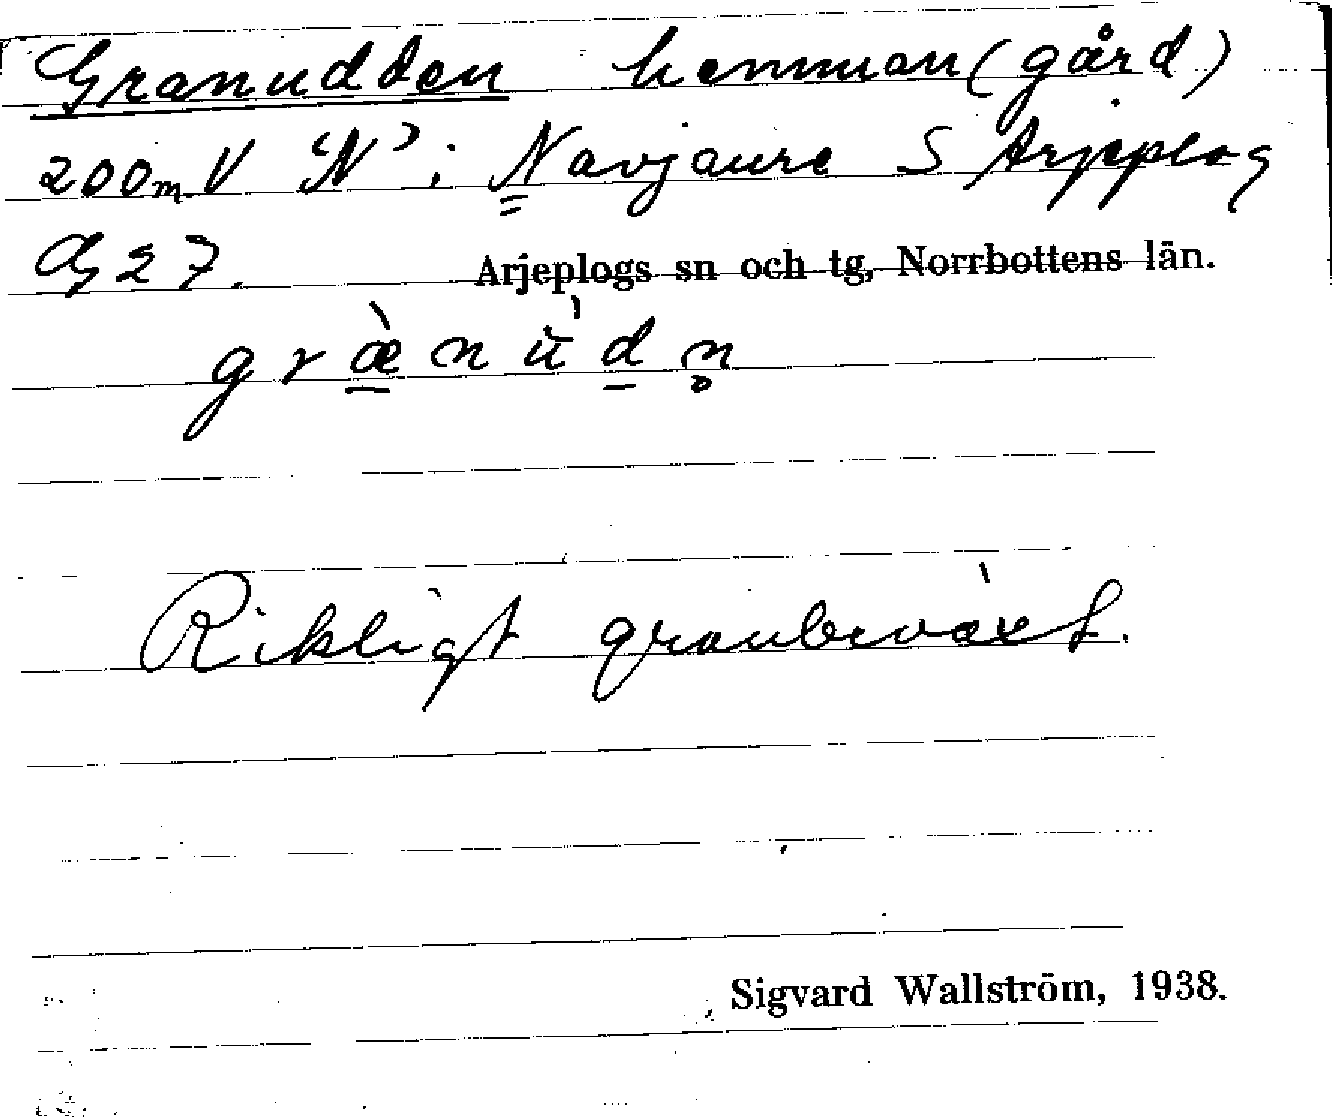 Granudden hemman (gård)
200 m V "N" i Navjaure S Arjeplog
G 27.
Arjeplogs sn och tg, Norrbottens län.
græ̀nǜdn̥
Rikligt granbeväxt.
Sigvard Wallström, 1938.